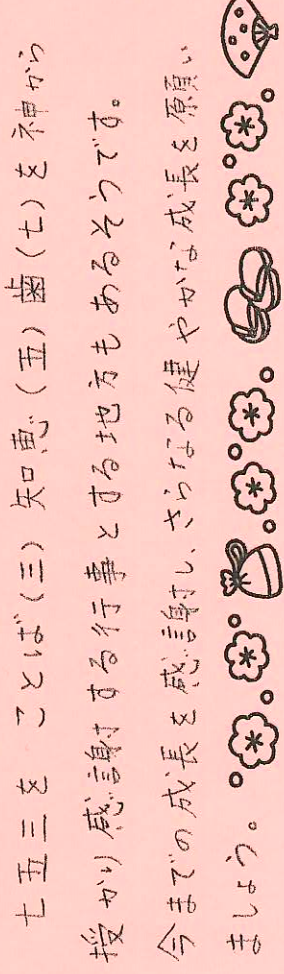 七五三を ことば(三) 知恵(五) 歯(七)を神から
授かり感謝する行事とする地方もあるそうです。
今までの成長を感謝し、さらなる健やかな成長を願い
ましょう。